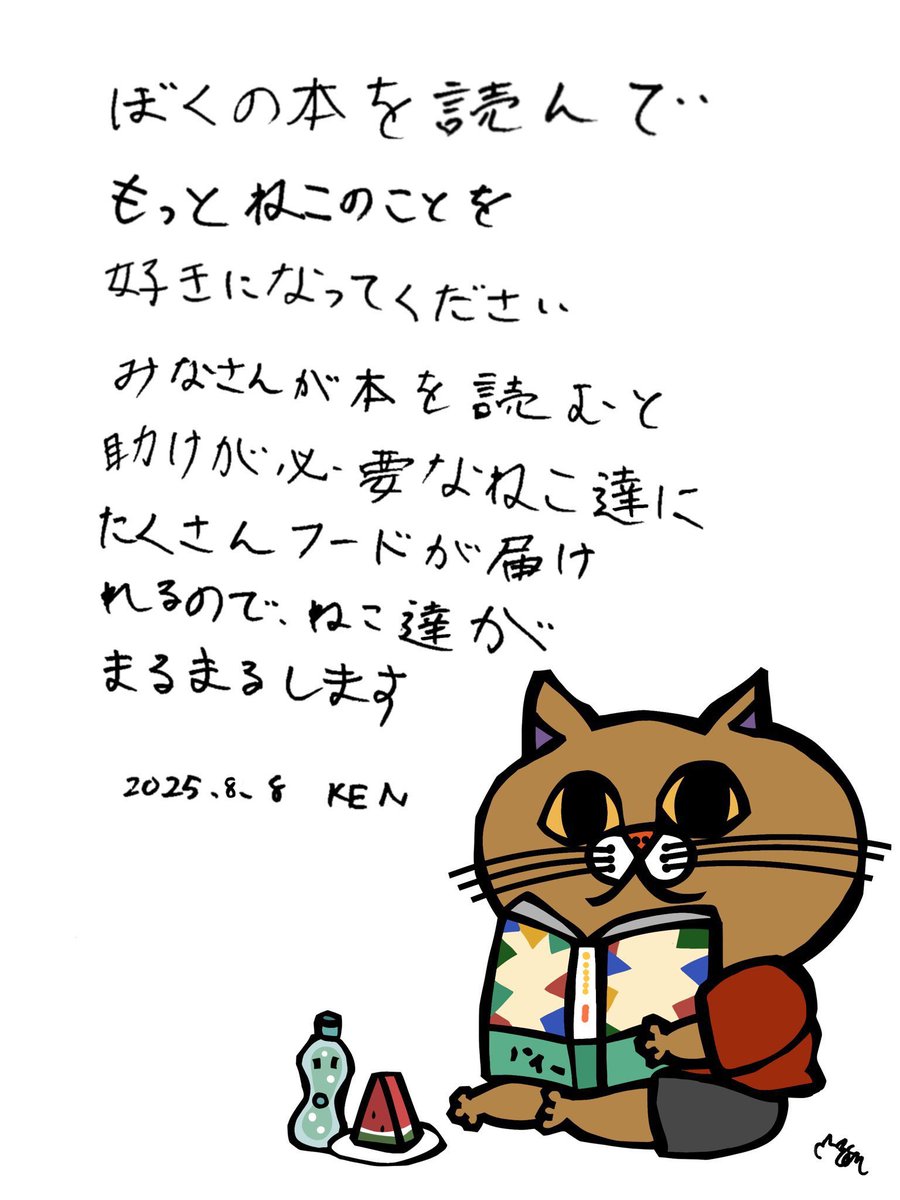 ぼくの本を読んで‥
もっとねこのことを
好きになってください
みなさんが本を読むと
助けが必要なねこ達に
たくさんフードが届け
れるので、ねこ達が
まるまるします
2025.8.8 KEN
パイー